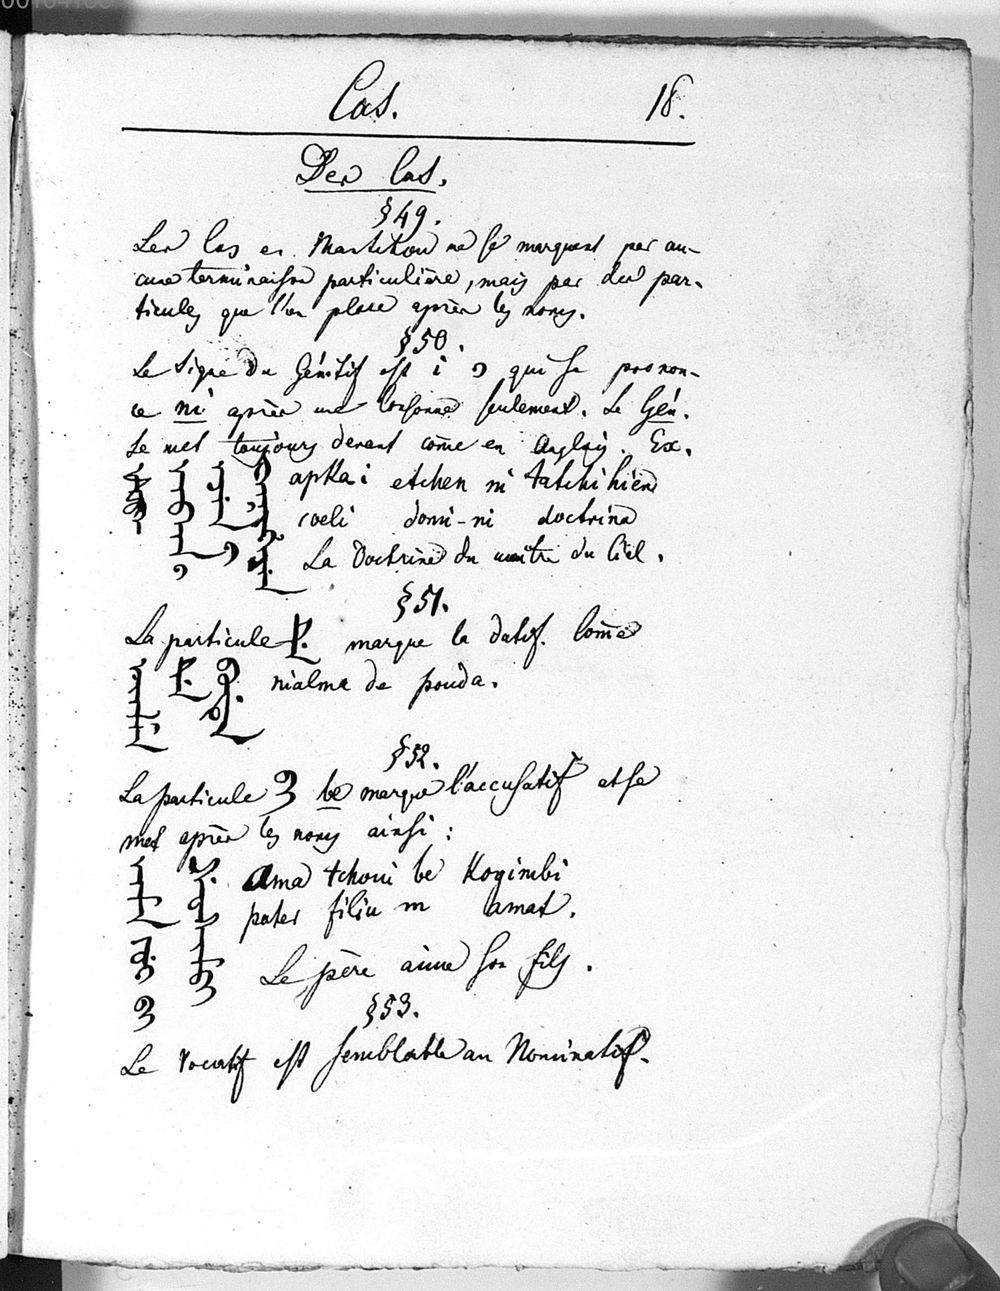 Cas. 18.
Des Cas.
§ 49.
Les Cas en Mantchou ne se marquent par au-
cune terminaison particulière, mais par des par-
ticules que l'on place après les noms.
§ 50.
Le signe du Génitif est i ᡳ qui se pronon-
ce ni après une consonne seulement. Le Gén.
se met toujours devant come en Anglais. Ex.
apka i etchen ni tatchihien
coeli domi-ni doctrina
La Doctrine du maître du Ciel.
§ 51.
La particule ᡩᡝ marque le datif. Come
nialma de pouda.
§ 52.
La particule ᠪᡝ be marque l'accusatif et se
met après les noms ainsi :
ama tchoui be kogimbi
pater filiu m amat.
Le père aime son fils.
§ 53.
Le vocatif est semblable au Nominatif.